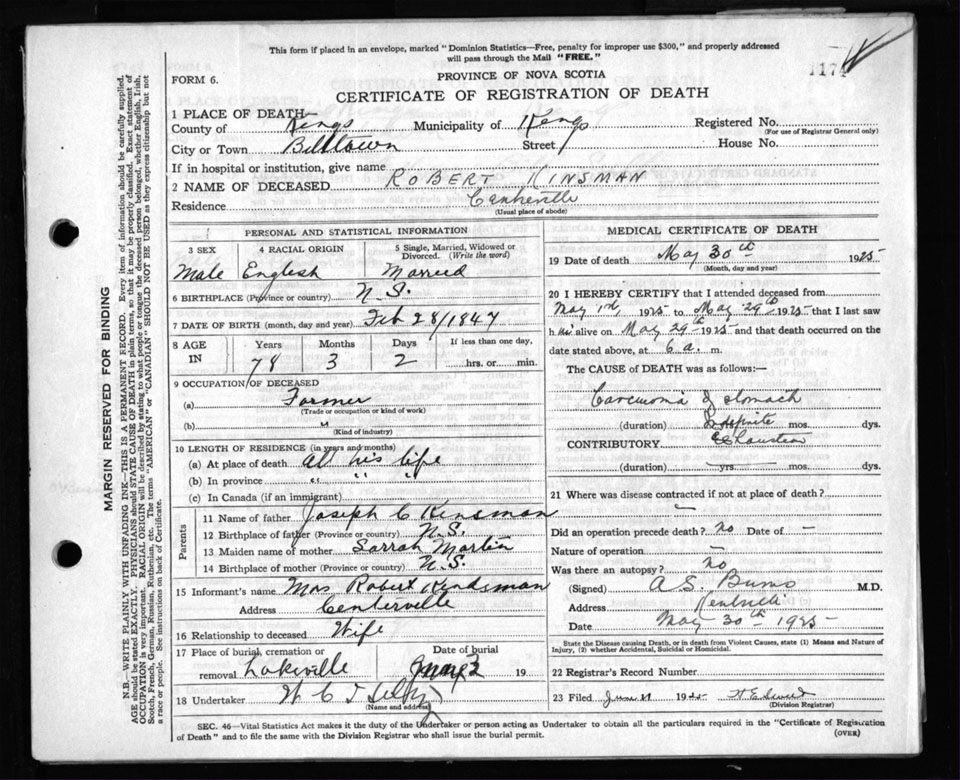 This form if placed in an envelope, marked "Dominion Statistics—Free, penalty for improper use $300," and properly addressed
will pass through the Mail "FREE."
1174
FORM 6.
PROVINCE OF NOVA SCOTIA
CERTIFICATE OF REGISTRATION OF DEATH
1 PLACE OF DEATH—
County of Kings Municipality of Kings Registered No.
(For use of Registrar General only)
City or Town Billtown Street House No.
If in hospital or institution, give name
2 NAME OF DECEASED ROBERT KINSMAN
Residence Centreville
(Usual place of abode)
PERSONAL AND STATISTICAL INFORMATION
3 SEX 4 RACIAL ORIGIN 5 Single, Married, Widowed or Divorced. (Write the word)
Male English Married
6 BIRTHPLACE (Province or country) N.S.
7 DATE OF BIRTH (month, day and year) Feb 28/1847
8 AGE IN Years Months Days If less than one day,
78 3 2 hrs. or min.
9 OCCUPATION OF DECEASED
(a) Farmer
(Trade or occupation or kind of work)
(b) "
(Kind of industry)
10 LENGTH OF RESIDENCE (in years and months)
(a) At place of death all his life
(b) In province " " "
(c) In Canada (if an immigrant)
Parents
11 Name of father Joseph C Kinsman
12 Birthplace of father (Province or country) N.S.
13 Maiden name of mother Sarrah Martin
14 Birthplace of mother (Province or country) N.S.
15 Informant's name Mrs Robert Kindsman
Address Centerville
16 Relationship to deceased Wife
17 Place of burial, cremation or Date of burial
removal Lakeville 19
18 Undertaker W C T
(Name and address)
MEDICAL CERTIFICATE OF DEATH
19 Date of death May 30th 1925
(Month, day and year)
20 I HEREBY CERTIFY that I attended deceased from
May 1st, 1925 to May 29th 1925 that I last saw
h im alive on May 29th 1925 and that death occurred on the
date stated above, at 6 a. m.
The CAUSE of DEATH was as follows:—
Carcinoma of stomach
(duration) Indefinite mos. dys.
CONTRIBUTORY Exhaustion
(duration) yrs. mos. dys.
21 Where was disease contracted if not at place of death?
Did an operation precede death? No Date of —
Nature of operation —
Was there an autopsy? No
(Signed) A. S. Burns M.D.
Address Kentville
Date May 30th 1925
State the Disease causing Death, or in death from Violent Causes, state (1) Means and Nature of
Injury, (2) whether Accidental, Suicidal or Homicidal.
22 Registrar's Record Number
23 Filed June 1925
(Division Registrar)
SEC. 46—Vital Statistics Act makes it the duty of the Undertaker or person acting as Undertaker to obtain all the particulars required in the "Certificate of Registration
of Death" and to file the same with the Division Registrar who shall issue the burial permit. (OVER)
MARGIN RESERVED FOR BINDING
N.B.—WRITE PLAINLY WITH UNFADING INK—THIS IS A PERMANENT RECORD. Every item of information should be carefully supplied.
AGE should be stated EXACTLY. PHYSICIANS should STATE CAUSE OF DEATH in plain terms, so that it may be properly classified. Exact statement of
OCCUPATION is very important. RACIAL ORIGIN will be described by stating to what people or tongue the deceased person belonged, whether English, Irish,
Scotch, French, German, Russian, Ruthenian, etc. The terms "AMERICAN" or "CANADIAN" SHOULD NOT BE USED as they express citizenship but not
a race or people. See instructions on back of Certificate.